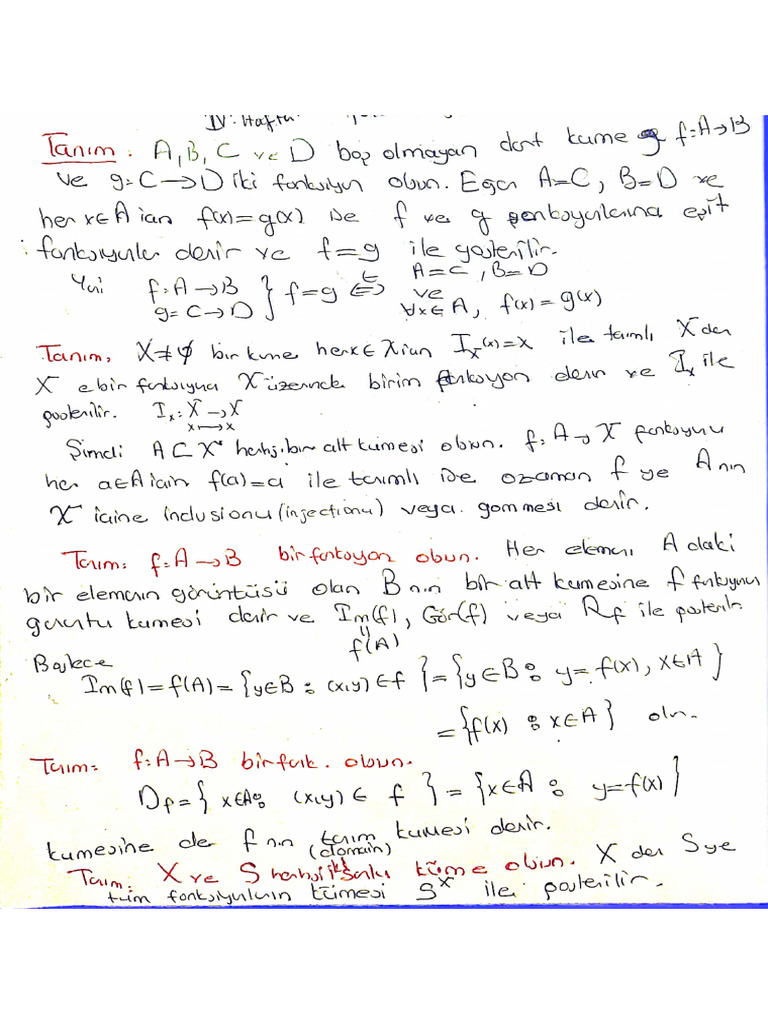 IV. Hafta
Tanım: A, B, C ve D boş olmayan dört küme f: A → B
ve g: C → D iki fonksiyon olsun. Eğer A=C, B=D ve
her x∈A için f(x)=g(x) ise f ve g fonksiyonlarına eşit
fonksiyonlar denir ve f=g ile gösterilir.
Yani f: A → B } f=g ⇔ A=C, B=D
g: C → D ve ∀x∈A, f(x)=g(x)
Tanım, X≠∅ bir küme her x∈X için I_x(x)=x ile tanımlı X den
X e bir fonksiyona X üzerinde birim fonksiyon denir ve I_x ile
gösterilir. I_x: X → X
x ↦ x
Şimdi A⊂X herhangi bir alt kümesi olsun. f: A → X fonksiyonu
her a∈A için f(a)=a ile tanımlı ise o zaman f ye A nın
X içine inclusionu (injectionu) veya gömmesi denir.
Tanım: f: A → B bir fonksiyon olsun. Her elemanı A daki
bir elemanın görüntüsü olan B nın bir alt kümesine f fonksiyonun
görüntü kümesi denir ve Im(f), Gör(f) veya R_f ile gösterilir
= f(A)
Böylece
Im(f)=f(A)={y∈B : (x,y)∈f}={y∈B : y=f(x), x∈A}
={f(x) : x∈A} olur.
Tanım: f: A → B bir fonk. olsun.
D_f={x∈A : (x,y)∈ f}={x∈A : y=f(x)}
kümesine de f nın tanım kümesi denir.
(domain)
Tanım: X ve S herhangi iki küme olsun. X den S ye
tüm fonksiyonların kümesi S^X ile gösterilir.